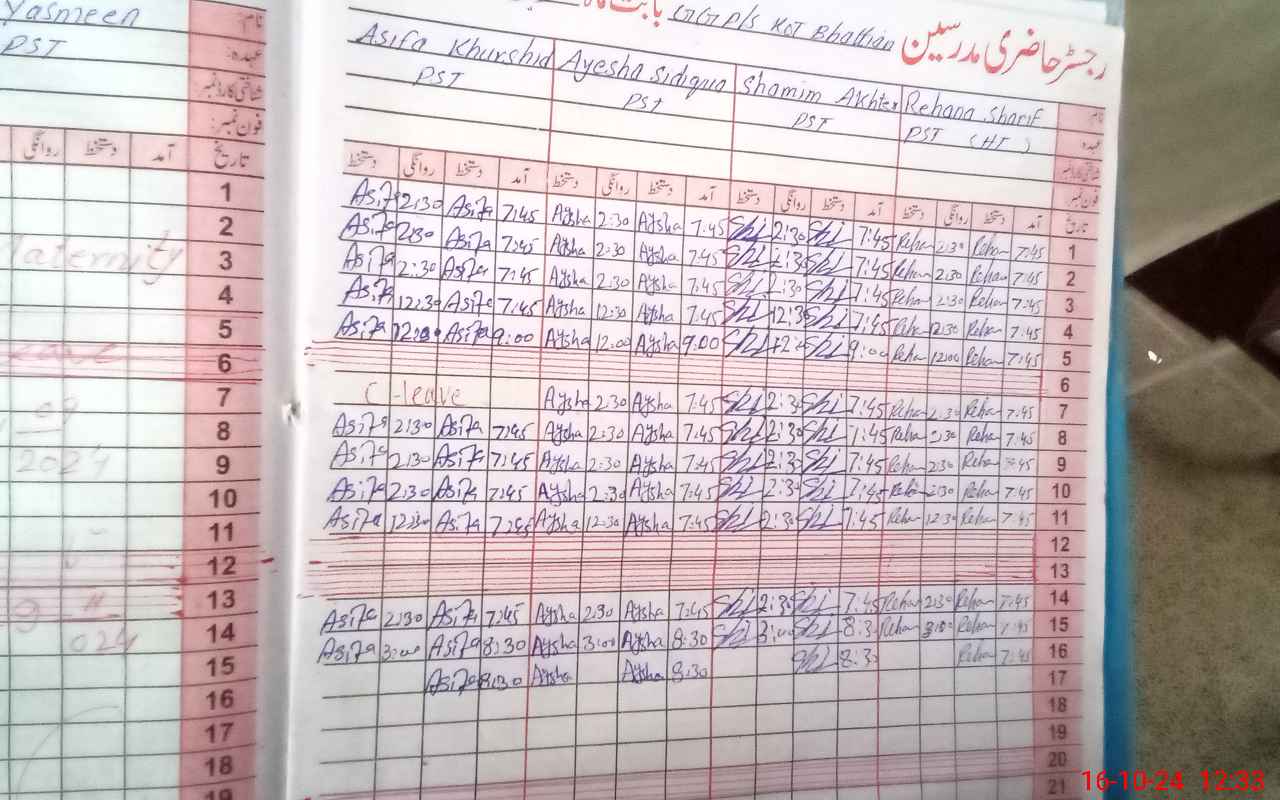 Yasmeen نام:
PST عہدہ:
شناختی کارڈ نمبر:
فون نمبر:
روانگی دستخط آمد تاریخ
1
2
Maternity 3
4
5
Leave 6
09 7
8
2024 9
10
11
12
9 " 13
024 14
15
16
17
18
19
رجسٹر حاضری مدرسین بابت ماہ GGP/S Kot Bhattian
Asifa Khurshid Ayesha Sidiqua Shamim Akhter Rehana Sharif نام:
PST PST PST PST (HT) عہدہ:
شناختی کارڈ نمبر
فون نمبر
دستخط روانگی دستخط آمد دستخط روانگی دستخط آمد دستخط روانگی دستخط آمد دستخط روانگی دستخط آمد تاریخ
Asifa 2:30 Asifa 7:45 Aysha 2:30 Aysha 7:45 Shi 2:30 Shi 7:45 Rehan 2:30 Rehan 7:45 1
Asifa 2:30 Asifa 7:45 Aysha 2:30 Aysha 7:45 Shi 2:30 Shi 7:45 Rehan 2:30 Rehan 7:45 2
Asifa 2:30 Asifa 7:45 Aysha 2:30 Aysha 7:45 Shi 2:30 Shi 7:45 Rehan 2:30 Rehan 7:45 3
Asifa 12:30 Asifa 7:45 Aysha 12:30 Aysha 7:45 Shi 12:30 Shi 7:45 Rehan 12:30 Rehan 7:45 4
Asifa 12:00 Asifa 9:00 Aysha 12:00 Aysha 9:00 Shi Shi 9:00 Rehan 12:00 Rehan 7:45 5
6
C-leave Aysha 2:30 Aysha 7:45 Shi 2:30 Shi 7:45 Rehan 2:30 Rehan 7:45 7
Asifa 2:30 Asifa 7:45 Aysha 2:30 Aysha 7:45 Shi 2:30 Shi 7:45 Rehan 2:30 Rehan 7:45 8
Asifa 2:30 Asifa 7:45 Aysha 2:30 Aysha 7:45 Shi 2:30 Shi 7:45 Rehan 2:30 Rehan 7:45 9
Asifa 2:30 Asifa 7:45 Aysha 2:30 Aysha 7:45 Shi 2:30 Shi 7:45 Rehan 2:30 Rehan 7:45 10
Asifa 12:30 Asifa 7:45 Aysha 12:30 Aysha 7:45 Shi 2:30 Shi 7:45 Rehan 12:30 Rehan 7:45 11
12
13
Asifa 2:30 Asifa 7:45 Aysha 2:30 Aysha 7:45 Shi 2:30 Shi 7:45 Rehan 2:30 Rehan 7:45 14
Asifa 3:00 Asifa 8:30 Aysha 3:00 Aysha 8:30 Shi 3:00 Shi 8:30 Rehan Rehan 7:45 15
Asifa 8:30 Aysha Aysha 8:30 Shi 8:30 Rehan 7:45 16
17
18
19
20
21
16-10-24 12:33